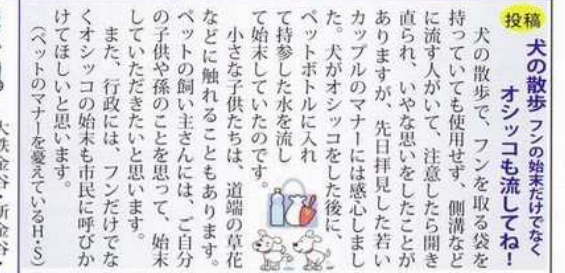 投稿
犬の散歩 フンの始末だけでなく
オシッコも流してね！
犬の散歩で、フンを取る袋を
持っていても使用せず、側溝など
に流す人がいて、注意したら開き
直られ、いやな思いをしたことが
ありますが、先日拝見した若い
カップルのマナーには感心しまし
た。犬がオシッコをした後に、
ペットボトルに入れ
て持参した水を流し
て始末していたのです。
小さな子供たちは、道端の草花
などに触れることもあります。
ペットの飼い主さんには、ご自分
の子供や孫のことを思って、始末
していただきたいと思います。
また、行政には、フンだけでな
くオシッコの始末も市民に呼びか
けてほしいと思います。
（ペットのマナーを憂えているH・S）